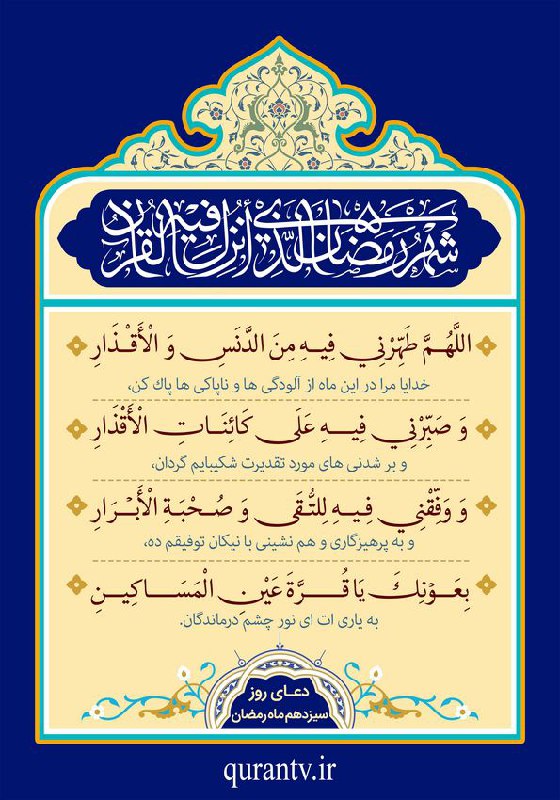 شهر رمضان الذی أنزل فیه القرآن
اللَّهُمَّ طَهِّرْنِي فِيهِ مِنَ الدَّنَسِ وَ الْأَقْذَارِ
خدایا مرا در این ماه از آلودگی ها و ناپاکی ها پاك کن،
وَ صَبِّرْنِي فِيهِ عَلَى كَائِنَاتِ الْأَقْذَارِ
و بر شدنی های مورد تقدیرت شکیبایم گردان،
وَ وَفِّقْنِي فِيهِ لِلتُّقَى وَ صُحْبَةِ الْأَبْرَارِ
و به پرهیزگاری و هم نشینی با نیکان توفیقم ده،
بِعَوْنِكَ يَا قُرَّةَ عَيْنِ الْمَسَاكِينِ
به یاری ات ای نور چشم درماندگان.
دعای روز
سیزدهم ماه رمضان
qurantv.ir